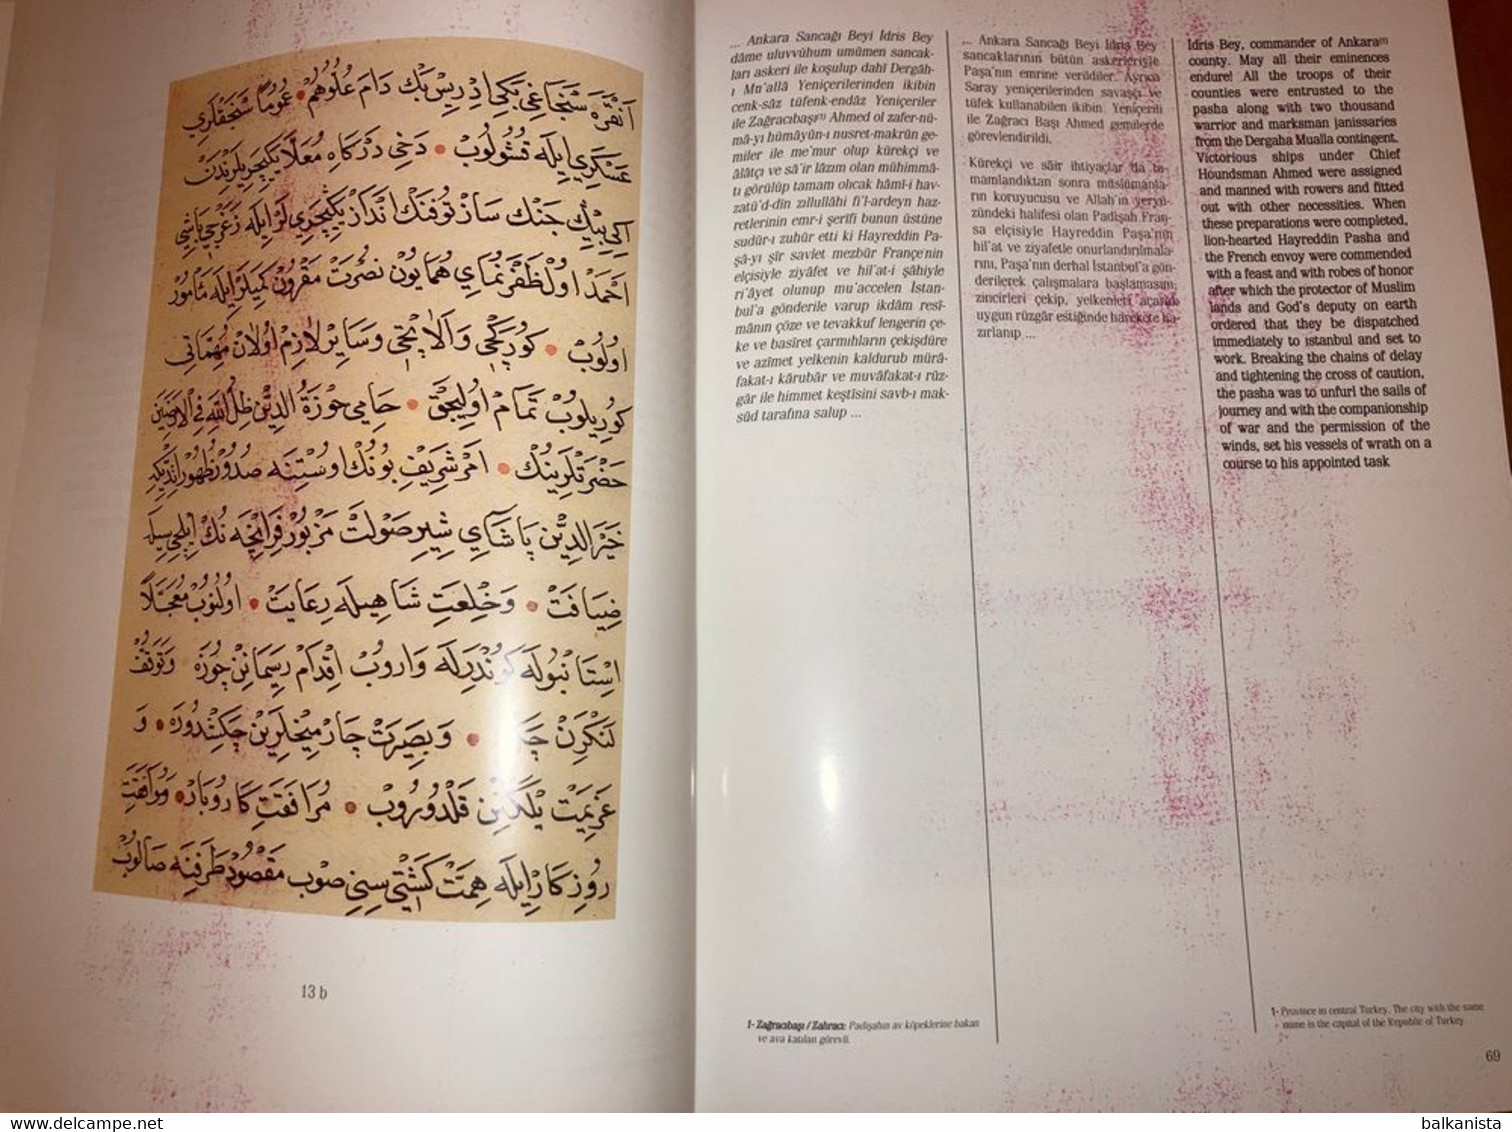 آنقَرَه سَنْجَاغِى بَكِى اِدْرِيسْ بَكْ دَامَ عُلُوُّهُمْ عُمُومًا سَنْجَقْلَرِى
عَسْكَرِى اِيلَه قُشُولُوبْ دَخِى دَرْكَاهِ مُعَلَّا يَكِيچَرِيلَرِنْدَنْ
اِكِى بِيكْ جَنْك سَازْ تُوفَنْك اَنْدَازْ يَكِيچَرِيلَرْ اِيلَه زَغَرْجِى بَاشِى
اَحْمَدْ اولْ ظَفَرْ نُمَاىِ هُمَايُونْ نُصْرَتْ مَقْرُونْ كَمِيلَرْ اِيلَه مَأمُورْ
اولُوبْ كُورَكْجِى وَآلَاتْجِى وَسَايِرْ لَازِمْ اولَانْ مُهِمَّاتِى
كُورِيلُوبْ تَمَامْ اولِيجَقْ حَامِىِ حَوْزَةُ الدِّينْ ظِلُّ اللهِ فِى الْاَرَضِينْ
حَضْرَتْلَرِينُكْ اَمْرِ شَرِيفِ بُونُكْ اوسْتِنَه صُدُورْ ظُهُورْ اِتْدِيكِه
خَيْرُ الدِّينْ پَاشَاىِ شِيرِ صَوْلَتْ مَزْبُورْ فِرَانْچَه نُكْ اِيلْچِيسِيلَه
ضِيَافَتْ وَخِلْعَتِ شَاهِيلَه رِعَايَتْ اولُنُوبْ مُعَجَّلًا
اِسْتَانْبُولَه كُونْدَرِلَه وَارُوبْ اِقْدَامْ رَسِمَانِنْ چُوزَه وَتَوَقُّفْ
لَنْكَرِنْ چَكَه وَبَصِيرَتْ چَارْمِيخْلَرِينْ چَكِشْدُورَه وَ
عَزِيمَتْ يَلْكَنِينْ قَلْدُورُوبْ مُرَافَقَتِ كَارُوبَارْ وَمُوَافَقَتِ
رُوزِكَارْ اِيلَه هِمَّتْ كَشْتِيسِنِى صَوْبِ مَقْصُودْ طَرَفِنَه صَالُوبْ
13 b
... Ankara Sancağı Beyi İdris Bey
dâme uluvvühum umûmen sancak-
ları askeri ile koşulup dahî Dergâh-
ı Mu'allâ Yeniçerilerinden ikibin
cenk-sâz tüfenk-endâz Yeniçeriler
ile Zağracıbaşı⁽¹⁾ Ahmed ol zafer-nü-
mâ-yı hümâyûn-ı nusret-makrûn ge-
miler ile me'mur olup kürekçi ve
âlâtçı ve sâ'ir lâzım olan mühimmâ-
tı görülüp tamam olıcak hâmî-i hav-
zatü'd-dîn zıllullâhi fi'l-ardeyn haz-
retlerinin emr-i şerîfi bunun üstüne
sudûr-ı zuhûr etti ki Hayreddin Pa-
şâ-yı şîr savlet mezbûr Françe'nin
elçisiyle ziyâfet ve hil'at-i şâhiyle
ri'âyet olunup mu'accelen İstan-
bul'a gönderile varup ikdâm resî-
mânın çöze ve tevakkuf lengerin çe-
ke ve basîret çarmıhların çekişdüre
ve azîmet yelkenin kaldurub mürâ-
fakat-ı kârubâr ve muvâfakat-ı rûz-
gâr ile himmet keştîsini savb-ı mak-
sûd tarafına salup ...
1- Zağracıbaşı / Zahracı: Padişahın av köpeklerine bakan
ve ava katılan görevli.
... Ankara Sancağı Beyi İdris Bey
sancaklarının bütün askerleriyle
Paşa'nın emrine verildiler. Ayrıca
Saray yeniçerilerinden savaşçı ve
tüfek kullanabilen ikibin Yeniçerili
ile Zağracı Başı Ahmed gemilerde
görevlendirildi.
Kürekçi ve sâir ihtiyaçlar da ta-
mamlandıktan sonra müslümanla-
rın koruyucusu ve Allah'ın yeryü-
zündeki halifesi olan Padişah Fran-
sa elçisiyle Hayreddin Paşa'nın
hil'at ve ziyafetle onurlandırılmala-
rını, Paşa'nın derhal İstanbul'a gön-
derilerek çalışmalara başlamasını,
zincirleri çekip, yelkenleri açarak
uygun rüzgâr estiğinde harekete ha-
zırlanıp ...
Idris Bey, commander of Ankara⁽¹⁾
county. May all their eminences
endure! All the troops of their
counties were entrusted to the
pasha along with two thousand
warrior and marksman janissaries
from the Dergaha Mualla contingent.
Victorious ships under Chief
Houndsman Ahmed were assigned
and manned with rowers and fitted
out with other necessities. When
these preparations were completed,
lion-hearted Hayreddin Pasha and
the French envoy were commended
with a feast and with robes of honor
after which the protector of Muslim
lands and God's deputy on earth
ordered that they be dispatched
immediately to ıstanbul and set to
work. Breaking the chains of delay
and tightening the cross of caution,
the pasha was to unfurl the sails of
journey and with the companionship
of war and the permission of the
winds, set his vessels of wrath on a
course to his appointed task
1- Province in central Turkey. The city with the same
name is the capital of the Republic of Turkey.
69
balkanista